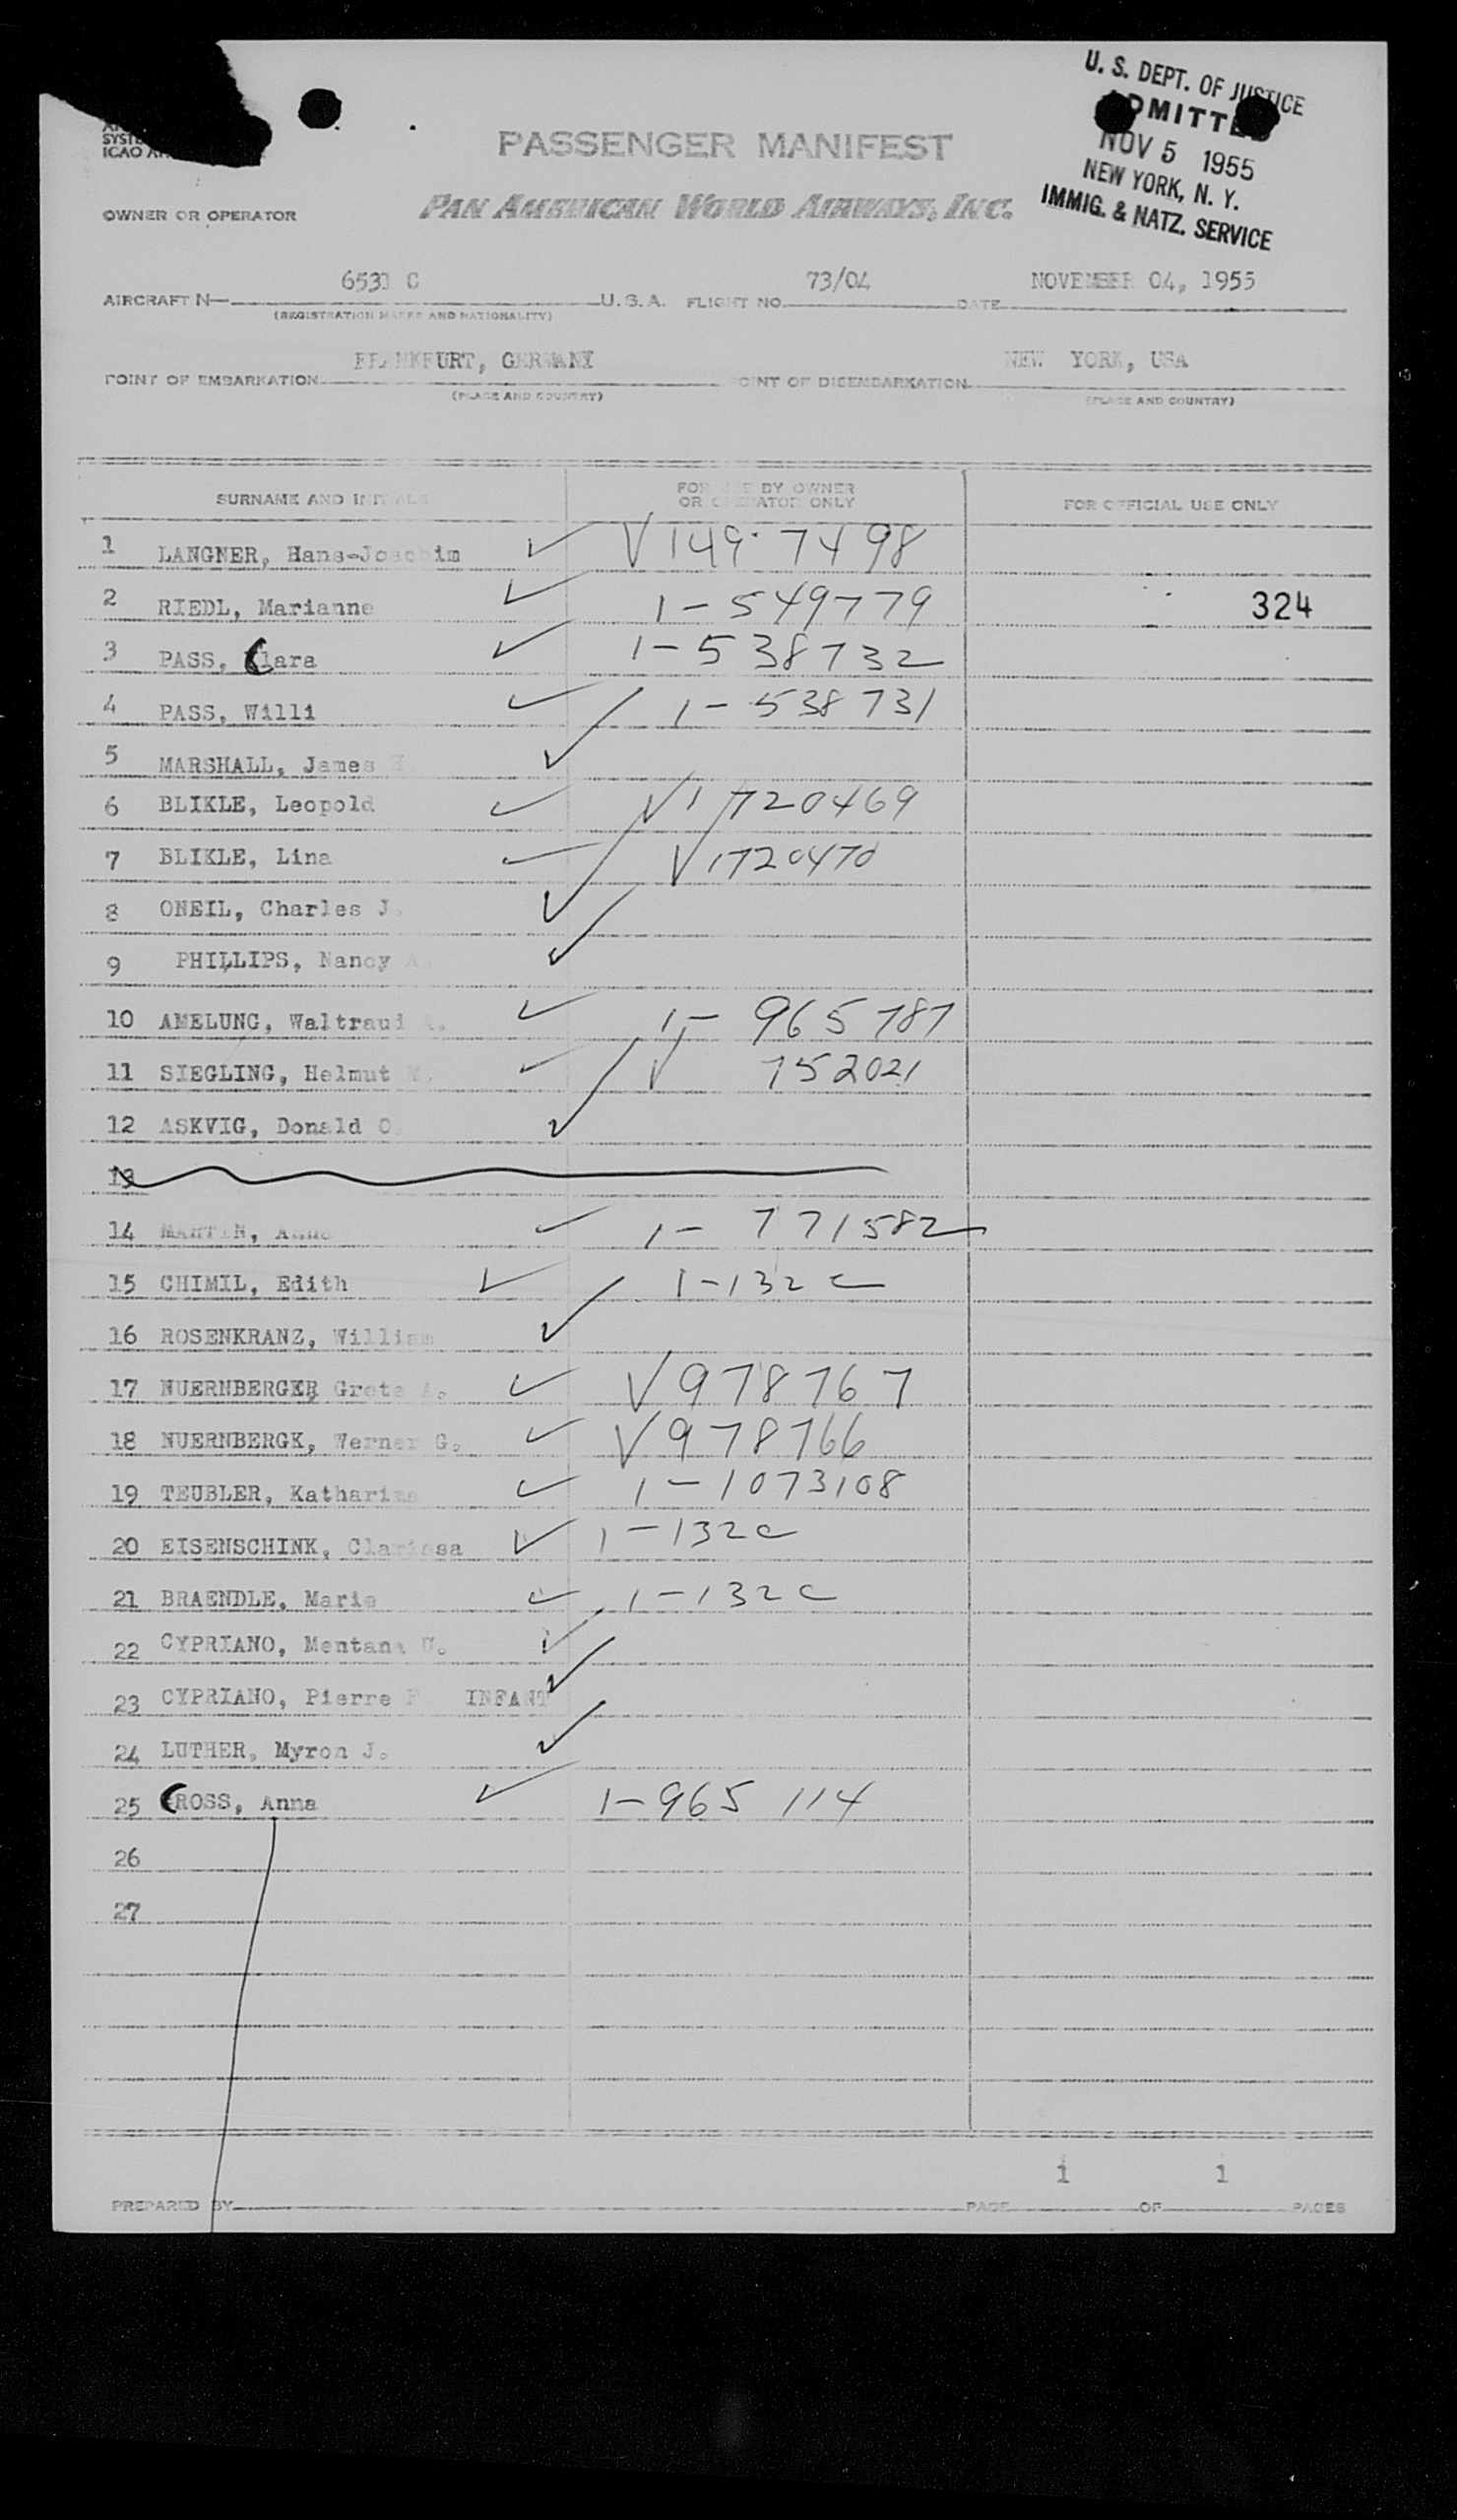 U. S. DEPT. OF JUSTICE
ADMITTED
NOV 5 1955
NEW YORK, N. Y.
IMMIG. & NATZ. SERVICE
ICAO
PASSENGER MANIFEST
OWNER OR OPERATOR
PAN AMERICAN WORLD AIRWAYS, INC.
AIRCRAFT N— 6531 C U.S.A. FLIGHT NO. 73/04 DATE NOVEMBER 04, 1955
(REGISTRATION MARKS AND NATIONALITY)
POINT OF EMBARKATION FRANKFURT, GERMANY POINT OF DISEMBARKATION NEW YORK, USA
(PLACE AND COUNTRY) (PLACE AND COUNTRY)
SURNAME AND INITIALS FOR USE BY OWNER OR OPERATOR ONLY FOR OFFICIAL USE ONLY
1 LANGNER, Hans-Joachim ✓ V 149·7498
2 RIEDL, Marianne ✓ 1-549779 324
3 PASS, Clara ✓ 1-538732
4 PASS, Willi ✓ 1-538731
5 MARSHALL, James ✓
6 BLIKLE, Leopold ✓ V1720469
7 BLIKLE, Lina ✓ V1720470
8 ONEIL, Charles J. ✓
9 PHILLIPS, Nancy A ✓
10 AMELUNG, Waltraud ✓ 1- 965787
11 SIEGLING, Helmut ✓ V 752021
12 ASKVIG, Donald O ✓
13
14 MARTIN, ✓ 1- 771582
15 CHIMIL, Edith ✓ 1-132c
16 ROSENKRANZ, William ✓
17 NUERNBERGER Grete A. ✓ V978767
18 NUERNBERGK, Werner G. ✓ V978766
19 TEUBLER, Katharina ✓ 1-1073108
20 EISENSCHINK, Clarissa ✓ 1-132c
21 BRAENDLE, Marie ✓ 1-132c
22 CYPRIANO, Mentana U. ✓
23 CYPRIANO, Pierre INFANT ✓
24 LUTHER, Myron J. ✓
25 CROSS, Anna ✓ 1-965 114
26
27
PREPARED BY PAGE 1 OF 1 PAGES